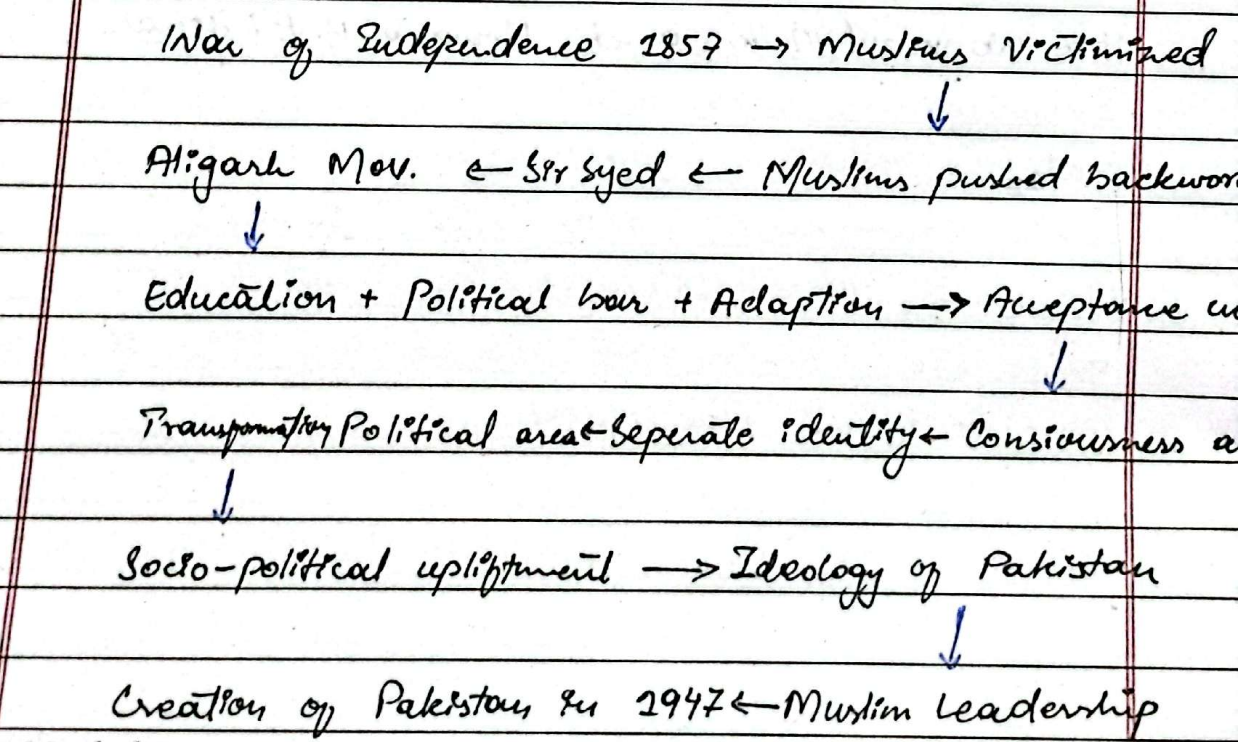 War of Independence 1857 → Muslims Victimized
↓
Aligarh Mov. ← Sir Syed ← Muslims pushed backwor
↓
Education + Political bar + Adaption → Acceptance
↓
Transformation Political area ← Seperate identity ← Consiousness a
↓
Socio-political upliftment → Ideology of Pakistan
↓
Creation of Pakistan in 1947 ← Muslim Leadership